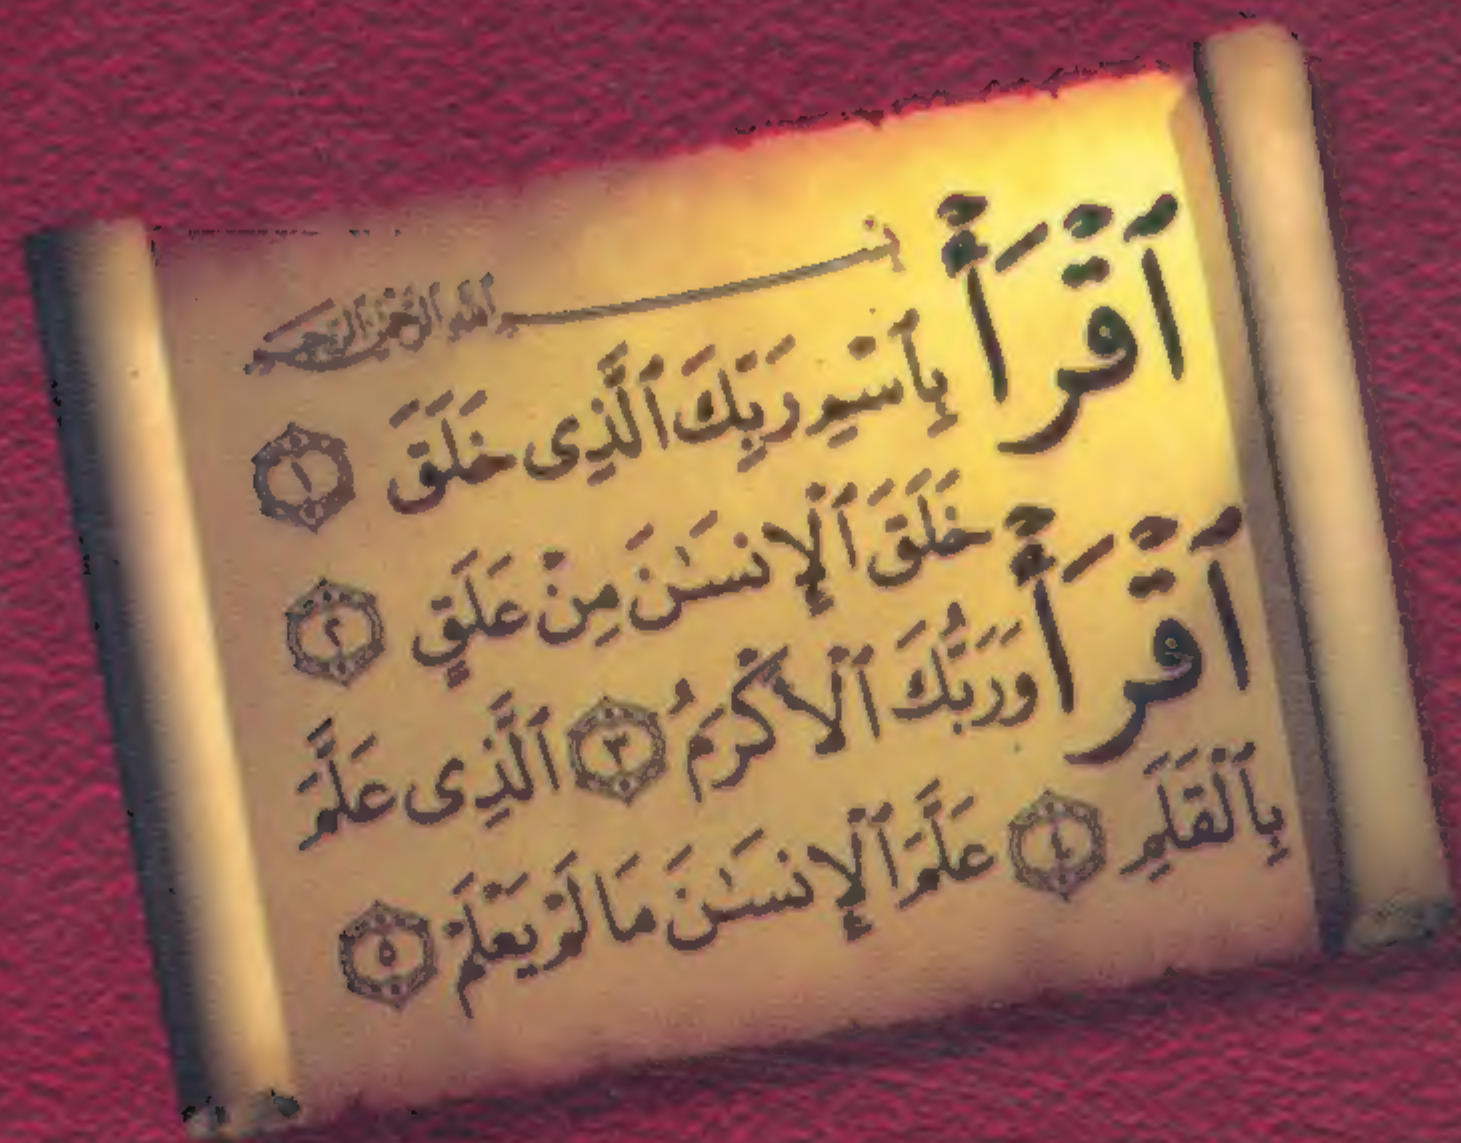 بسم الله الرحمن الرحيم
ٱقْرَأْ بِٱسْمِ رَبِّكَ ٱلَّذِى خَلَقَ ١
خَلَقَ ٱلْإِنسَٰنَ مِنْ عَلَقٍ ٢
ٱقْرَأْ وَرَبُّكَ ٱلْأَكْرَمُ ٣ ٱلَّذِى عَلَّمَ
بِٱلْقَلَمِ ٤ عَلَّمَ ٱلْإِنسَٰنَ مَا لَمْ يَعْلَمْ ٥